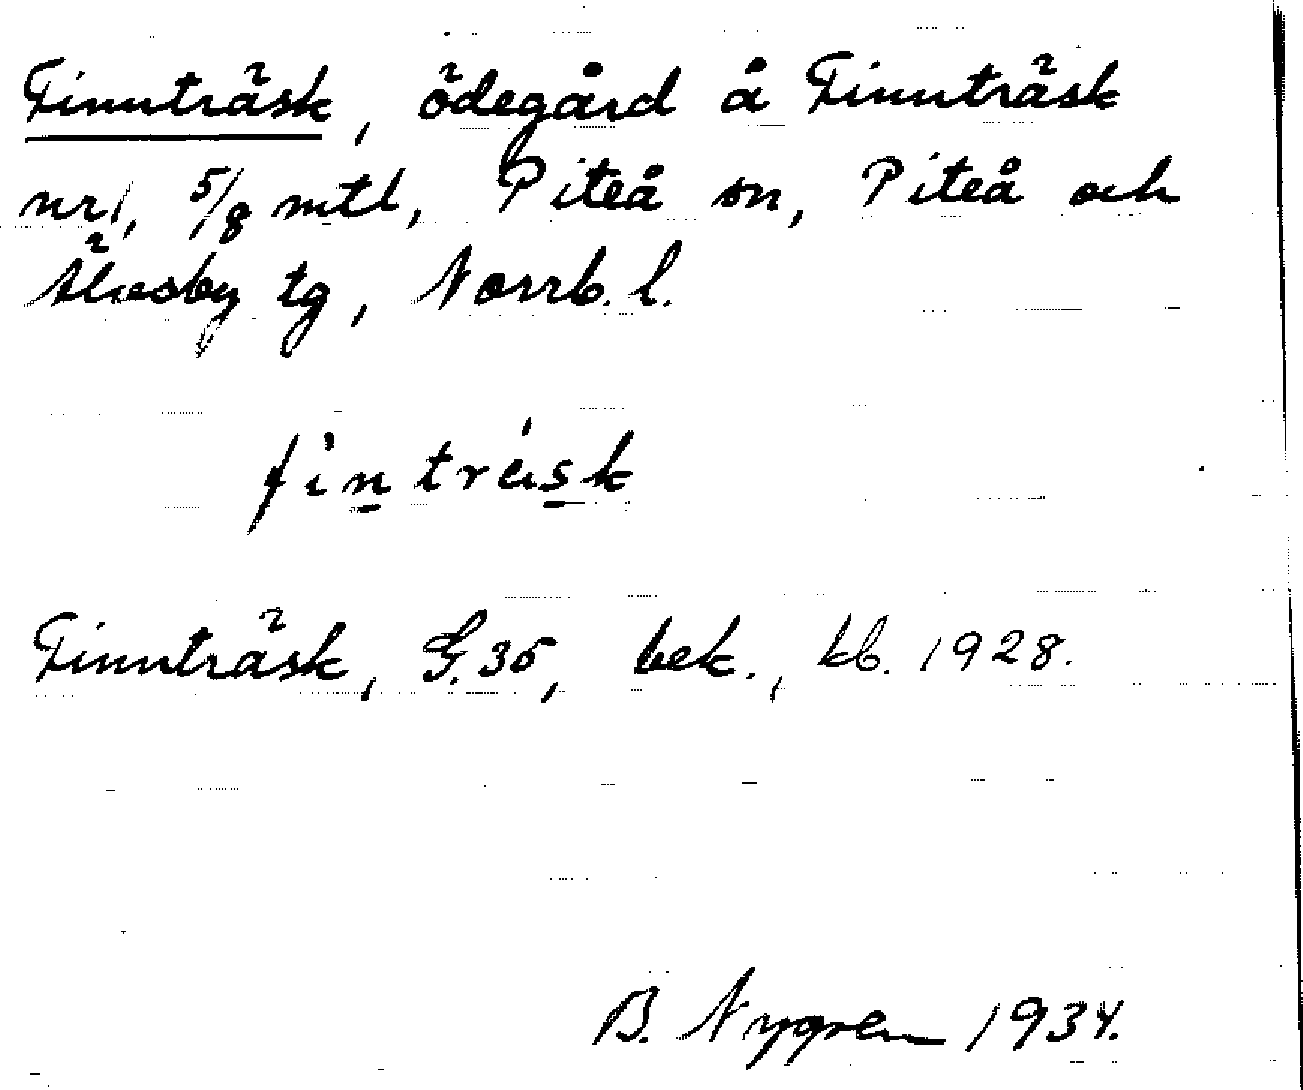 Finnträsk, ödegård å Finnträsk
nr 1, 5/8 mtl, Piteå sn, Piteå och
Älvsby tg, Norrb. l.
fìntrásk
Finnträsk, G. 35, bek., kb. 1928.
B. Nygren 1934.